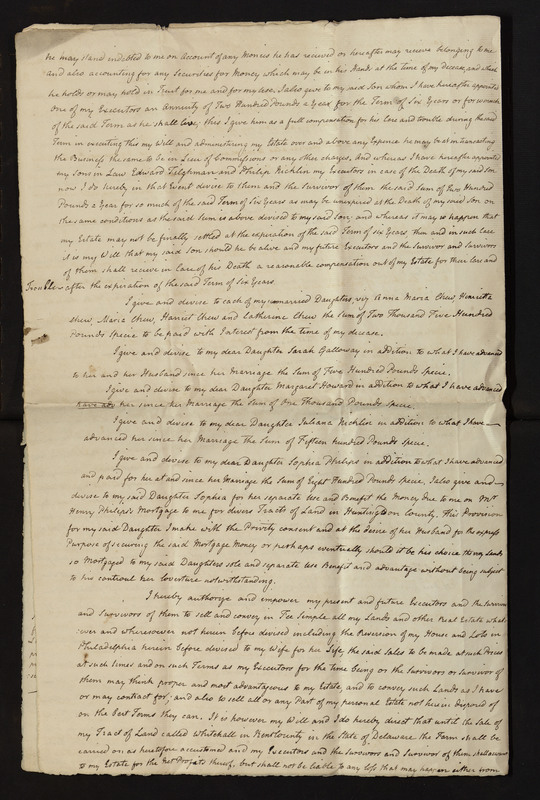 he may stand indebted to me on account of any Monies he has received or hereafter may receive belonging to me
and also accounting for any Securities for Money which may be in his Hands at the time of my Decease, and which
he holds or may hold in Trust for me and for my use. I also give to my said Son whom I have hereafter appointed
one of my Executors an annuity of Two Hundred Pounds a Year for the Term of Six Years or for so much
of the said Term as he shall live, this I give him as a full compensation for his Care and trouble during the said
Term in executing this my Will and administering my Estate over and above any Expence he may be at in transacting
the Business the same to be in Lieu of Commissions or any other charges, and whereas I have hereafter appointed
my Sons in Law Edward Tilghman and Philip Nicklin my Executors in case of the Death of my said Son
now I do hereby in that Event devise to them and the Survivor of them the said Sum of Two Hundred
Pounds a Year for so much of the said Term of Six Years as may be unexpired at the Death of my said Son on
the same conditions as the said Sum is above devised to my said Son; and whereas it may so happen that
my Estate may not be finally settled at the expiration of the said Term of Six Years then and in such Case
it is my Will that my said Son should he be alive and my future Executors and the Survivor and Survivors
of them shall receive in Case of his Death a reasonable compensation out of my Estate for their Care and
Trouble after the expiration of the said Term of Six Years.
I give and devise to each of my unmarried Daughters, viz Anna Maria Chew, Henrietta
Chew, Maria Chew, Harriet Chew and Catherine Chew the Sum of Two Thousand Five Hundred
Pounds Specie to be paid with Interest from the time of my decease.
I give and devise to my dear Daughter Sarah Galloway in addition to what I have advanced
to her and her Husband since her Marriage the Sum of Five Hundred Pounds Specie.
I give and devise to my dear Daughter Margaret Howard in addition to what I have advanced
her since her Marriage the Sum of One Thousand Pounds Specie.
I give and devise to my dear Daughter Juliana Nicklin in addition to what I have
advanced her since her Marriage the Sum of Fifteen hundred Pounds Specie.
I give and devise to my dear Daughter Sophia Philips in addition to what I have advanced
and paid for her at and since her Marriage the Sum of Eight Hundred Pounds Specie, I also give and
devise to my said Daughter Sophia for her separate Use and Benefit the Money due to me on Mr.
Henry Philips's Mortgage to me for divers Tracts of Land in Huntingdon County. This Provision
for my said Daughter I make with the Privity consent and at the desire of her Husband for the express
Purpose of securing the said Mortgage Money or perhaps eventually should it be his choice the Lands
so Mortgaged to my said Daughters sole and separate Use Benefit and advantage without being subject
to his controul her Coverture notwithstanding.
I hereby authorize and empower my present and future Executors and the Survivor
and Survivors of them to sell and convey in Fee Simple all my Lands and other Real Estate what-
-ever and wheresoever not herein before devised including the Reversion of my House and Lots in
Philadelphia herein before devised to my Wife for her Life, the said Sales to be made at such Prices
at such times and on such Terms as my Executors for the time being or the Survivors or Survivor of
them may think proper and most advantageous to my Estate, and to convey such Lands as I have
or may contract for; and also to sell all or any Part of my personal Estate not herein disposed of
on the best Terms they can. It is however my Will and I do hereby direct that until the Sale of
my Tract of Land called Whitehall in Kent County in the State of Delaware the Farm shall be
carried on as heretofore accustomed and my Executors and the Survivors and Survivor of them shall account
to my Estate for the Net Profits thereof, but shall not be liable to any loss that may happen either from